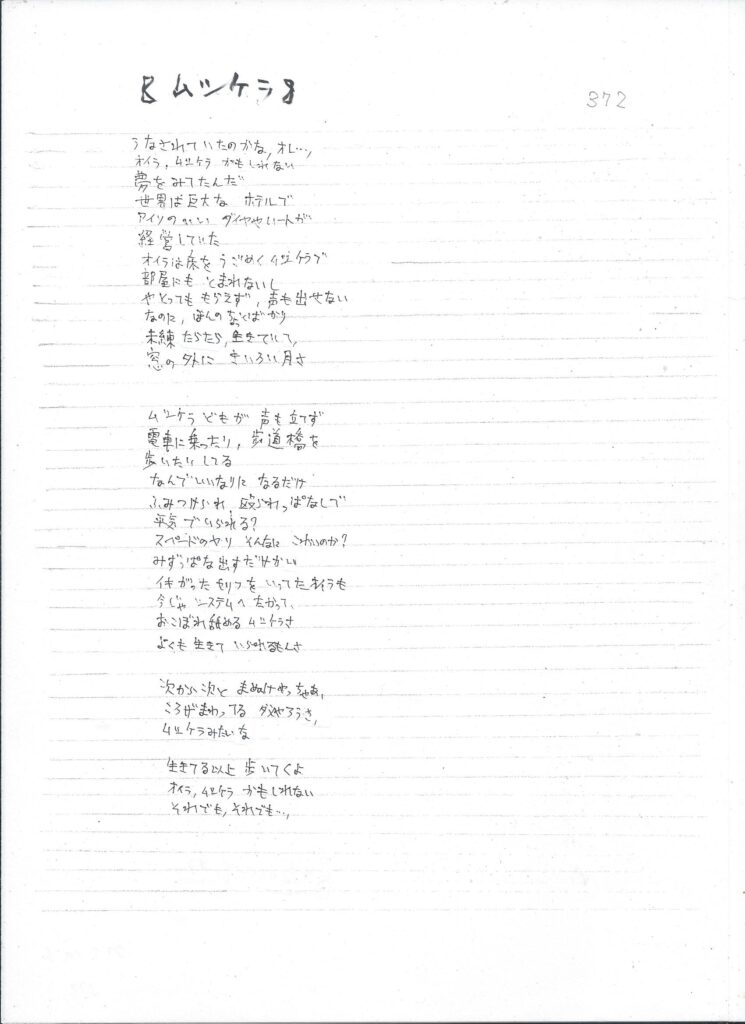 《ムシケラ》
372
うなされていたのかな,オレ…,
オイラ,ムシケラかもしれない
夢をみてたんだ
世界は巨大な ホテルで
アイソのいい ダイヤやハートが
経営していた
オイラは床をうごめくムシケラで
部屋にも とまれないし
やとっても もらえず,声も出せない
なのに,ほんのちょっとばかり
未練 たらたら,生きていて,
窓の外に きいろい月さ
ムシケラどもが 声も立てず
電車に乗ったり,歩道橋を
歩いたりしてる
なんでいいなりに なるだけ
ふみつけられ,殴られっぱなしで
平気でいられる?
スペードのヤリ そんなに こわいのか?
みずっぱな出すだけかい
イキがったセリフをいってたオイラも
今じゃ システムへたかって,
おこぼれ舐める ムシケラさ
よくも 生きて いられるもんさ
次から次と まぬけやっちゃあ,
ころげまわってる ダメやろうさ,
ムシケラみたいな
生きてる以上 歩いてくよ
オイラ,ムシケラ かもしれない
それでも,それでも…,